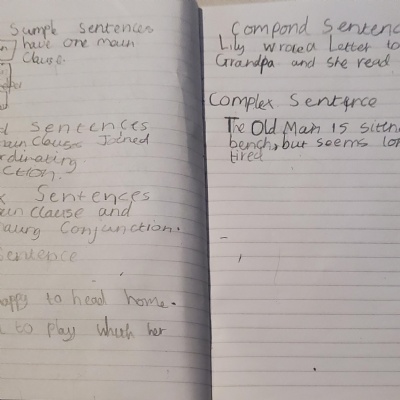 Simple Sentences
have one main
Clause.
Sentences
Clause Joined
Conjunction.
Sentences
Clause and
Conjunction.
Sentence
happy to head home.
to play her
Compond Sentenc
Lily wrote a Letter to
Grandpa and she read
Complex Sentence
The Old Man is sittin
bench, but seems
tired